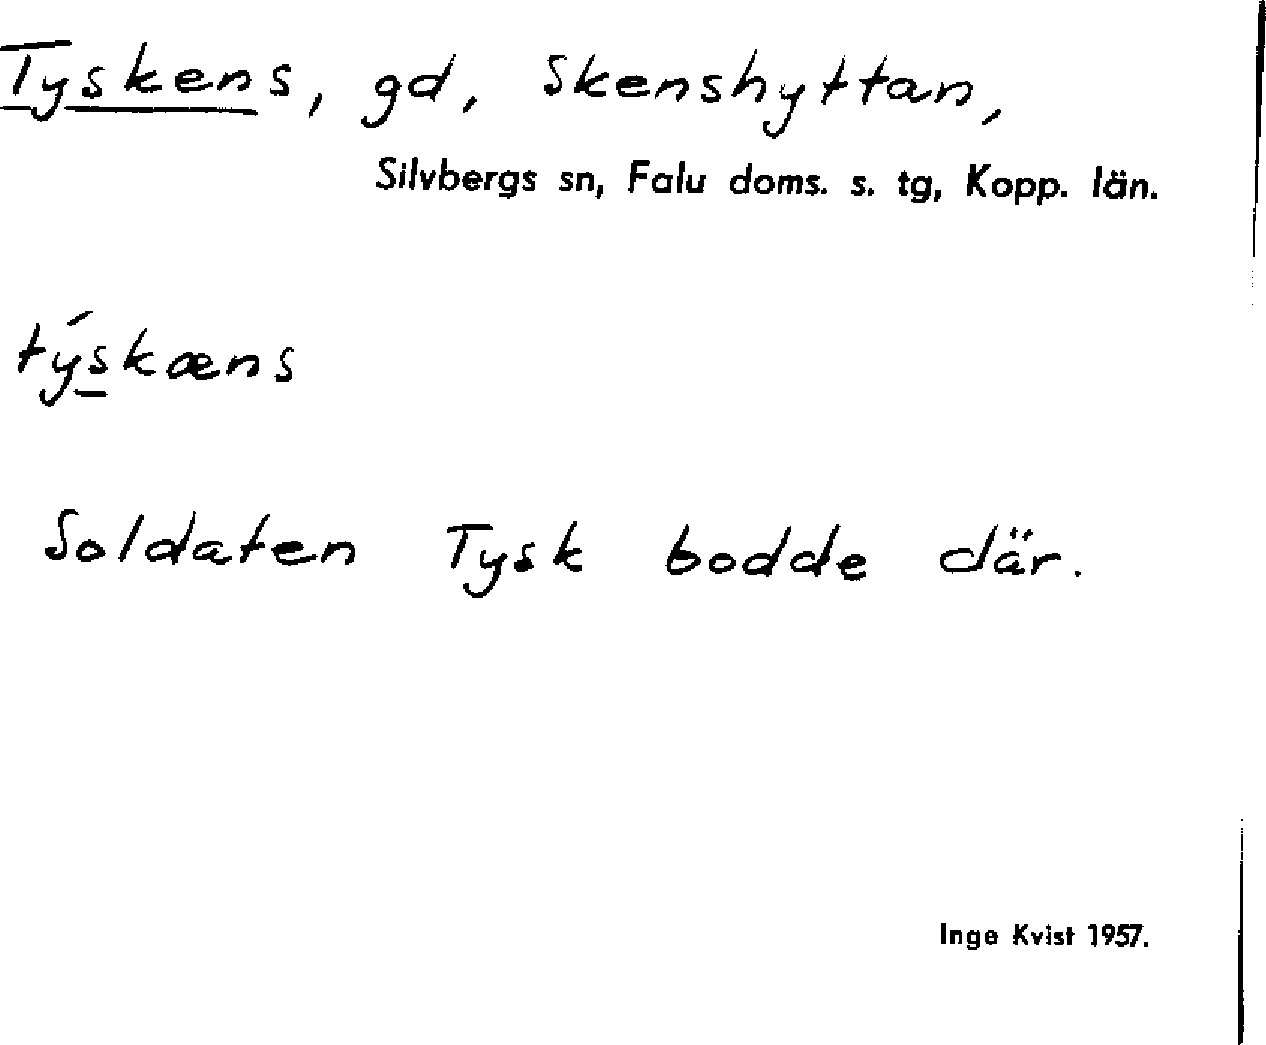 Tyskens, gd, Skenshyttan,
Silvbergs sn, Falu doms. s. tg, Kopp. län.
týskæns
Soldaten Tysk bodde där.
Inge Kvist 1957.